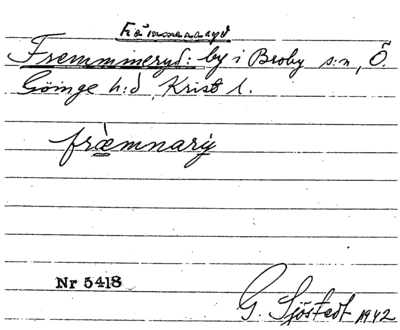 Främmenaryd
Fremmineryd: by i Broby s:n, Ö.
Göinge h:d, Krist l.
fræ̀mnarý
Nr 5418
G. Sjöstedt 1942